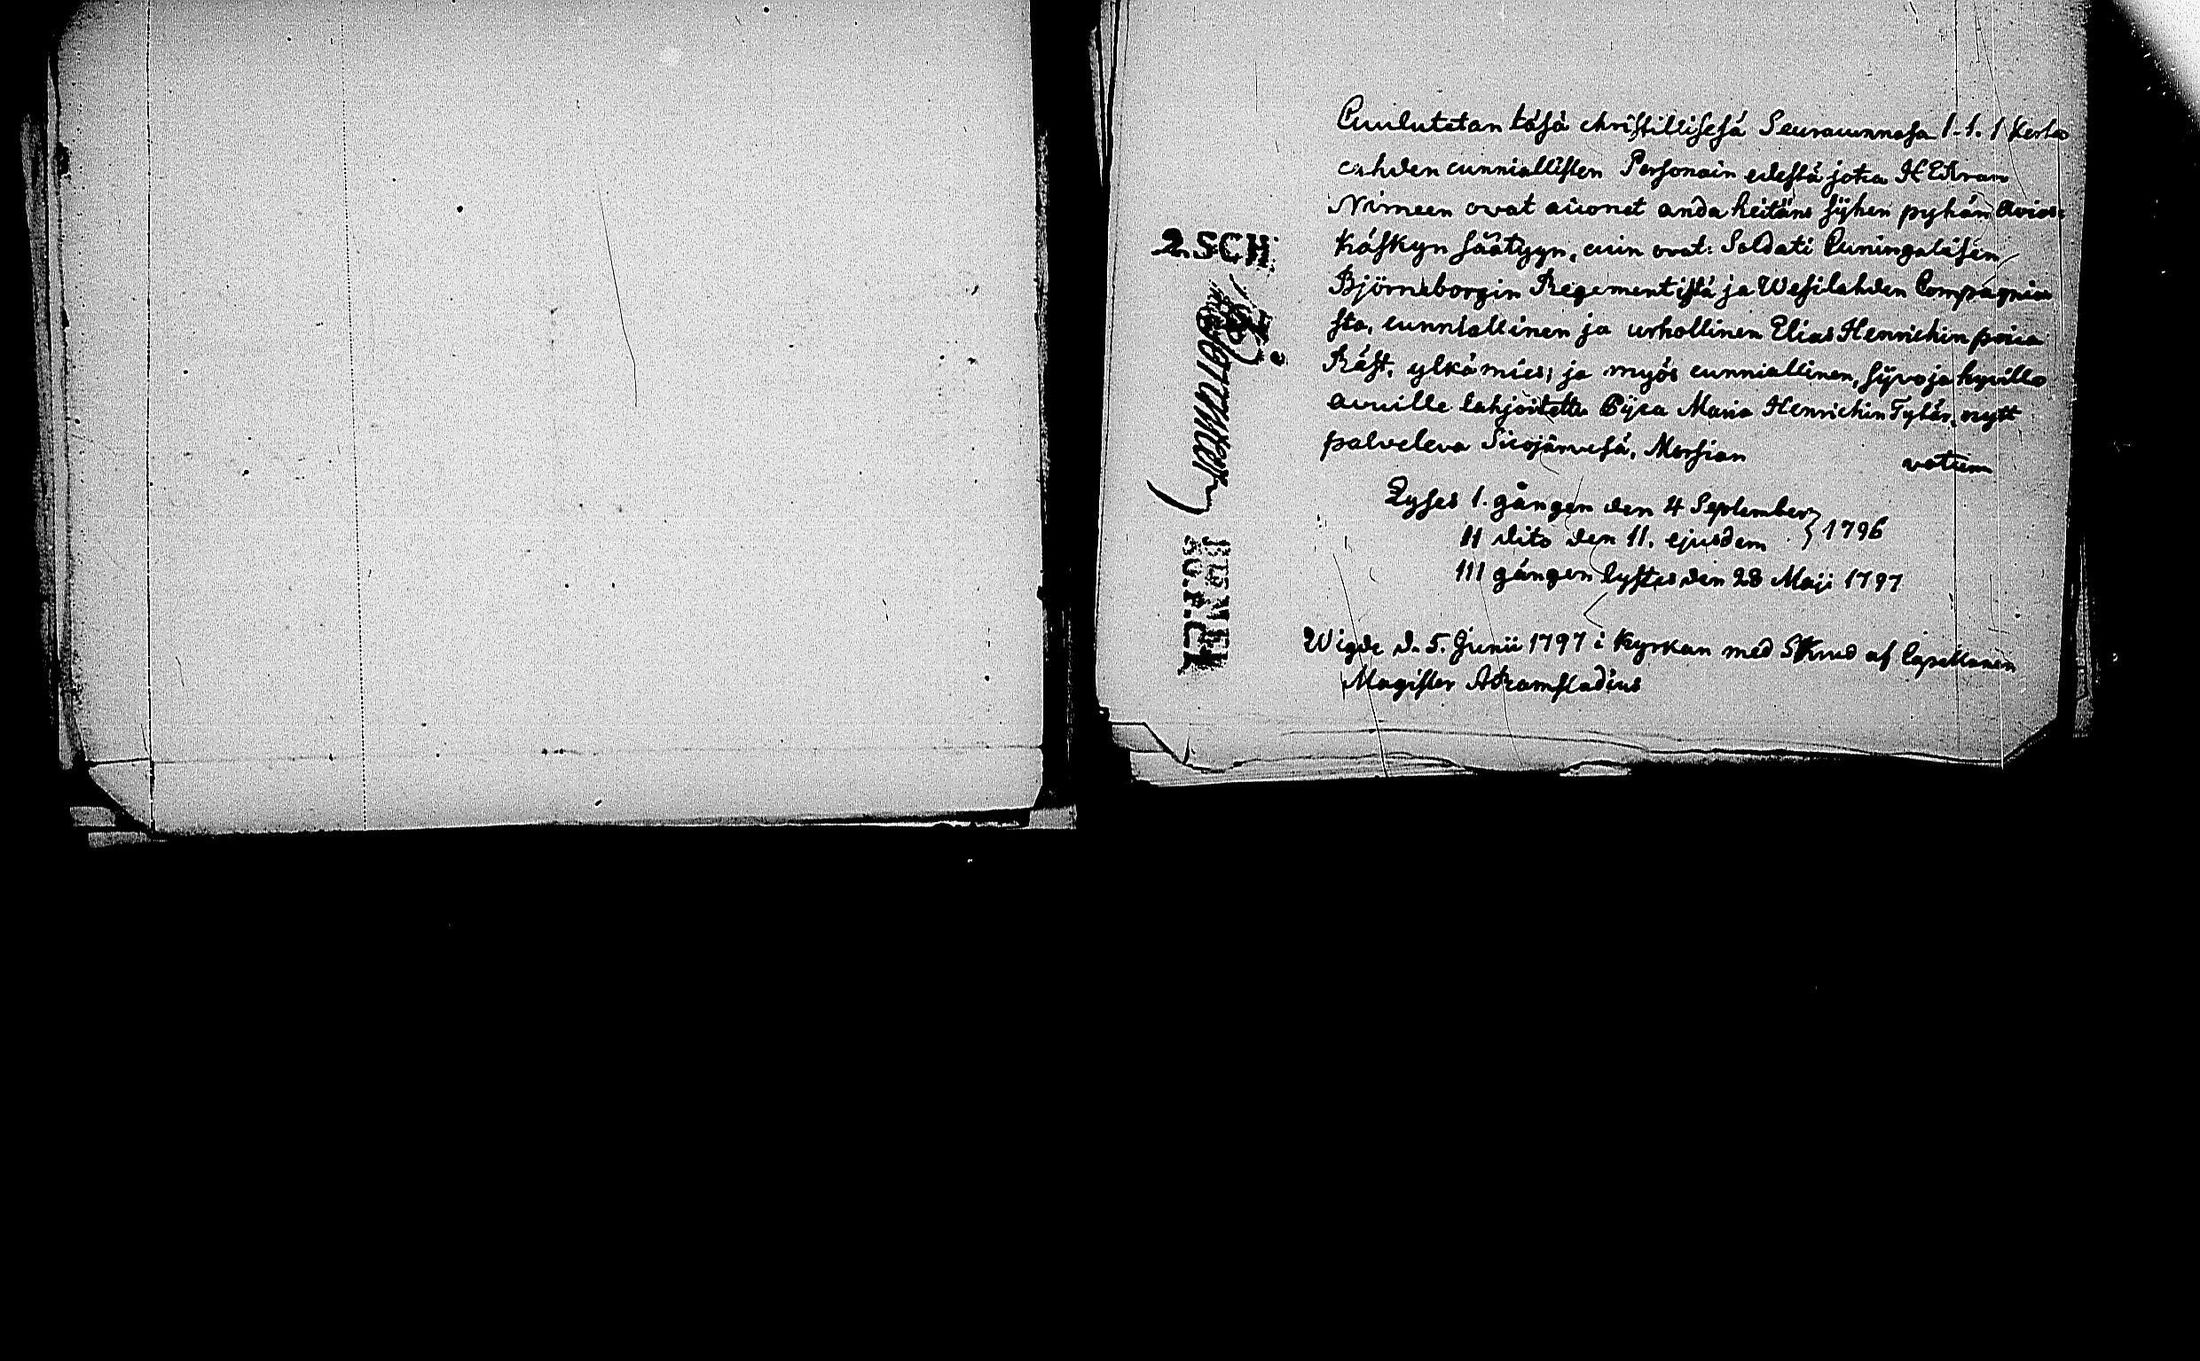 Cuulutetan täsä christillisesä Seuracunnasa 1. 1. 1 Kerta
cahden cunniallisten Personain edestä jotca HERran
Nimeen ovat aiconet anda heitäns sijhen pyhän Avios-
käskyn säätyyn, cuin ovat: Soldati Cuningalisen
Björneborgin Regementistä ja Wesilahden Compagnia
sta, cunniallinen ja urhollinen Elias Henrichin poica
Räst, ylkämies; ja myös cunniallinen, sijvo ja hyvillä
avuille lahjoitettu Pijca Maria Henrichin Tytär, nytt
palveleva Siiojärvesä, Morsian
votum
Lyses 1. gången den 4 September } 1796
II dito den 11. ejusdem
III gången lystes den 28 Maji 1797
Wigde d. 5. Junii 1797 i Kyrkan med Skrud af Capellanen
Magister Aramstadius
2. SCH